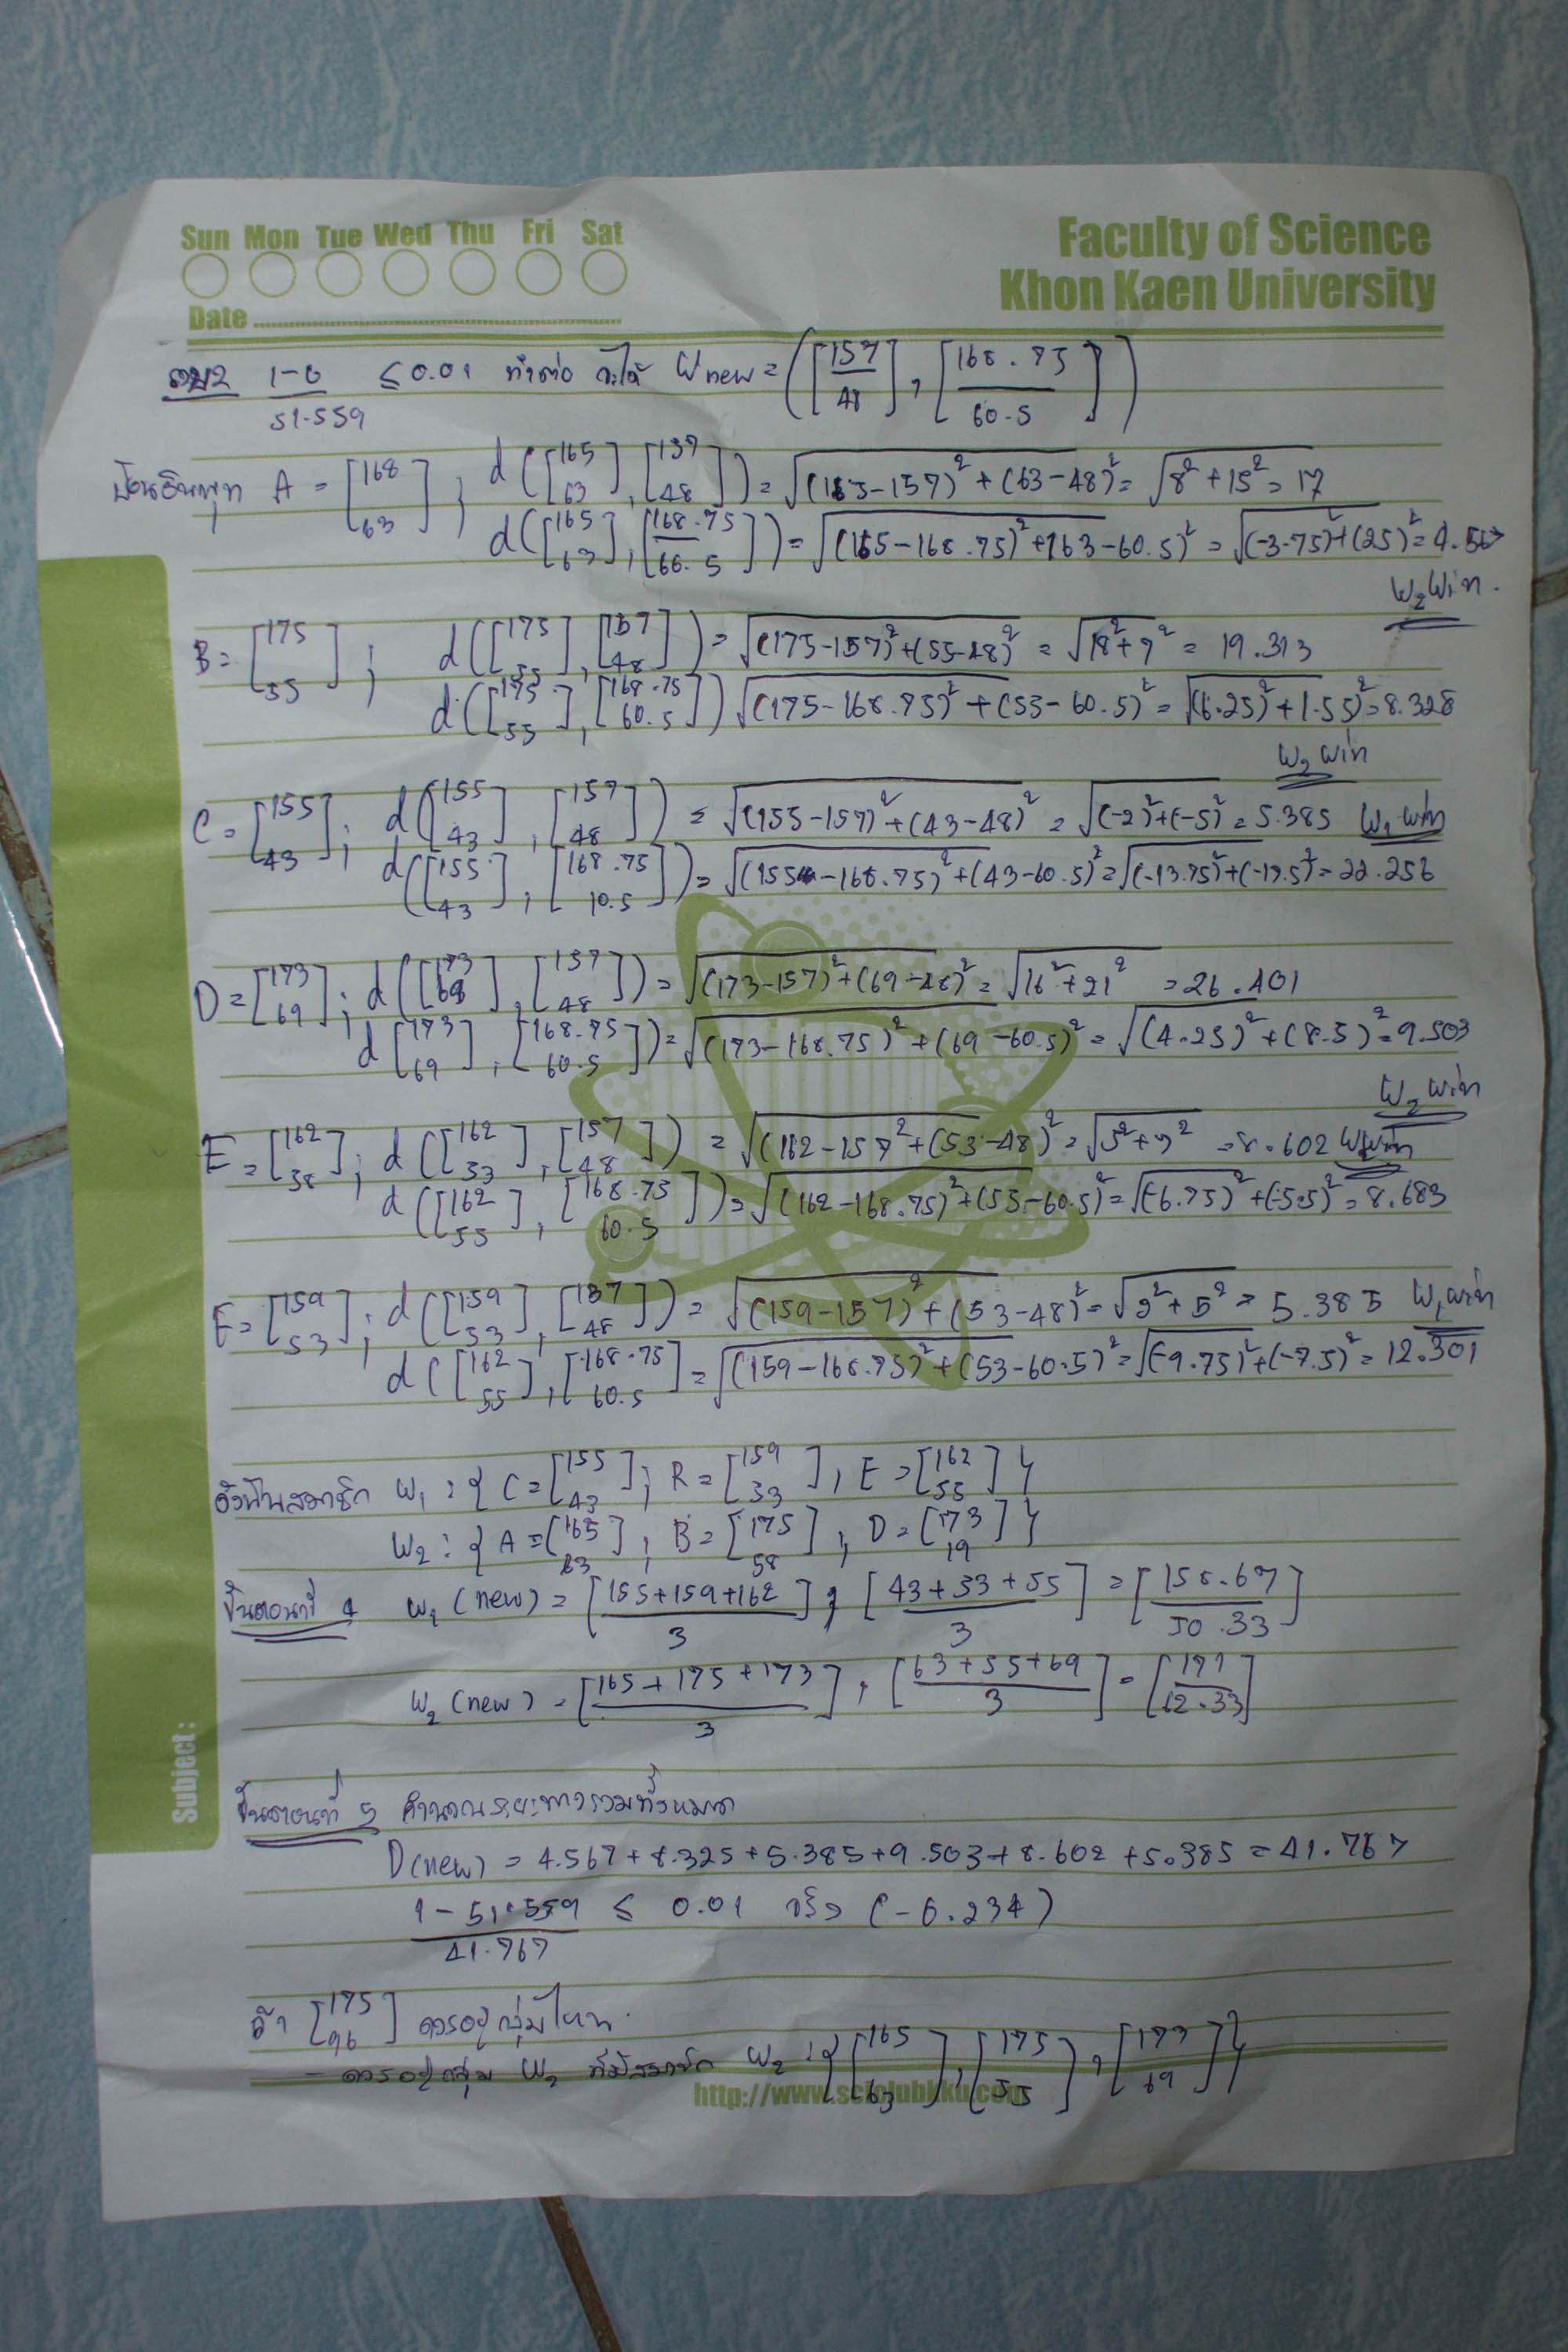 Sun Mon Tue Wed Thu Fri Sat
Date
Faculty of Science
Khon Kaen University
รอบ2 1-0/51.559 ≤ 0.01 ทำต่อ จะได้ Wnew = ([157 / 48], [168.75 / 60.5])
ป้อนอินพุท A = [168 / 63] ; d([165 / 63], [157 / 48]) = √(165-157)² + (63-48)² = √8² + 15² = 17
d([165 / 63], [168.75 / 60.5]) = √(165-168.75)² + (63-60.5)² = √(-3.75)² + (25)² = 4.567
W₂ Win.
B = [175 / 55] ; d([175 / 55], [157 / 48]) = √(175-157)² + (55-48)² = √18² + 7² = 19.313
d([175 / 55], [168.75 / 60.5]) √(175-168.75)² + (55-60.5)² = √(6.25)² + (-5.5)² = 8.328
W₂ win
C = [155 / 43] ; d([155 / 43], [157 / 48]) = √(155-157)² + (43-48)² = √(-2)² + (-5)² = 5.385 W₁ win
d([155 / 43], [168.75 / 10.5]) = √(155-168.75)² + (43-60.5)² = √(-13.75)² + (-17.5)² = 22.256
D = [173 / 69] ; d([173 / 69], [157 / 48]) = √(173-157)² + (69-48)² = √16² + 21² = 26.401
d[173 / 69], [168.75 / 60.5]) = √(173-168.75)² + (69-60.5)² = √(4.25)² + (8.5)² = 9.503
W₂ win
E = [162 / 58] ; d([162 / 53], [157 / 48]) = √(162-157² + (53-48)² = √5² + 7² = 8.602 W₁ win
d([162 / 55], [168.75 / 60.5]) = √(162-168.75)² + (55-60.5)² = √(-6.75)² + (-5.5)² = 8.683
F = [159 / 53] ; d([159 / 53], [157 / 48]) = √(159-157)² + (53-48)² = √2² + 5² = 5.385 W₁ win
d([162 / 55], [168.75 / 60.5] = √(159-168.75)² + (53-60.5)² = √(-9.75)² + (-7.5)² = 12.301
ดังนั้นสมาชิก W₁ : { C = [155 / 43] ; R = [159 / 53] , E = [162 / 55] }
W₂ : { A = [165 / 63] , B = [175 / 58] , D = [173 / 19] }
ขั้นตอนที่ 4 W₁ (new) = [155+159+162 / 3] , [43+53+55 / 3] = [158.67 / 50.33]
W₂ (new) = [165+175+173 / 3] , [63+55+69 / 3] = [171 / 62.33]
ขั้นตอนที่ 5 คำนวณระยะทางรวมทั้งหมด
D(new) = 4.567 + 8.325 + 5.385 + 9.503 + 8.602 + 5.385 = 41.767
1 - 51.559 / 41.767 ≤ 0.01 จริง (-0.234)
ถ้า [175 / 96] ควรอยู่กลุ่มไหน
- ควรอยู่กลุ่ม W₂ ที่มีสมาชิก W₂ : { [165 / 63], [175 / 55], [173 / 69] }
Subject :